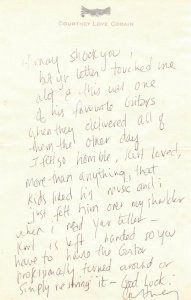 COURTNEY LOVE COBAIN
it may shock you,
but yr letter touched me
alot & this was one
of his favorite Guitars
when they delivered all of
them the other day
I felt so horrible, lost loved,
more than anything, that
kids liked his music and i
just felt him over my shoulder
when i read your letter –
Kurt is left handed so you
have to have the Guitar
turned around or
Simply restring it – Good Luck.
Courtney